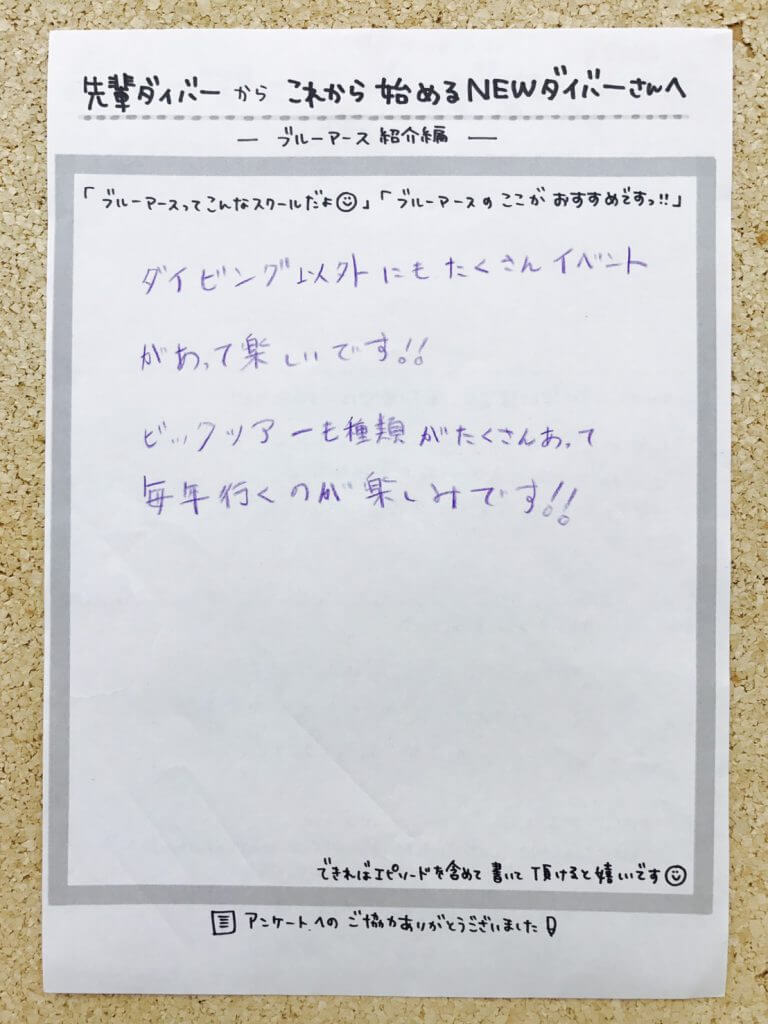 先輩ダイバーから これから 始めるNEWダイバーさんへ
ー ブルーアース 紹介編 ー
「ブルーアースってこんなスクールだよ☺」「ブルーアースの ここが おすすめですっ!!」
ダイビング以外にもたくさんイベント
があって楽しいです!!
ビックツアーも種類がたくさんあって
毎年行くのが楽しみです!!
できればエピソードを含めて 書いて頂けると嬉しいです☺
アンケートへの ご協力ありがとうございました